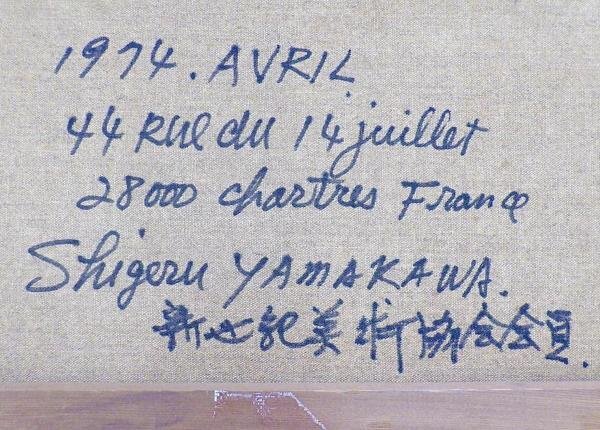 1974. AVRIL
44 Rue du 14 juillet
28000 chartres France
Shigeru YAMAKAWA.
新世紀美術協会会員.